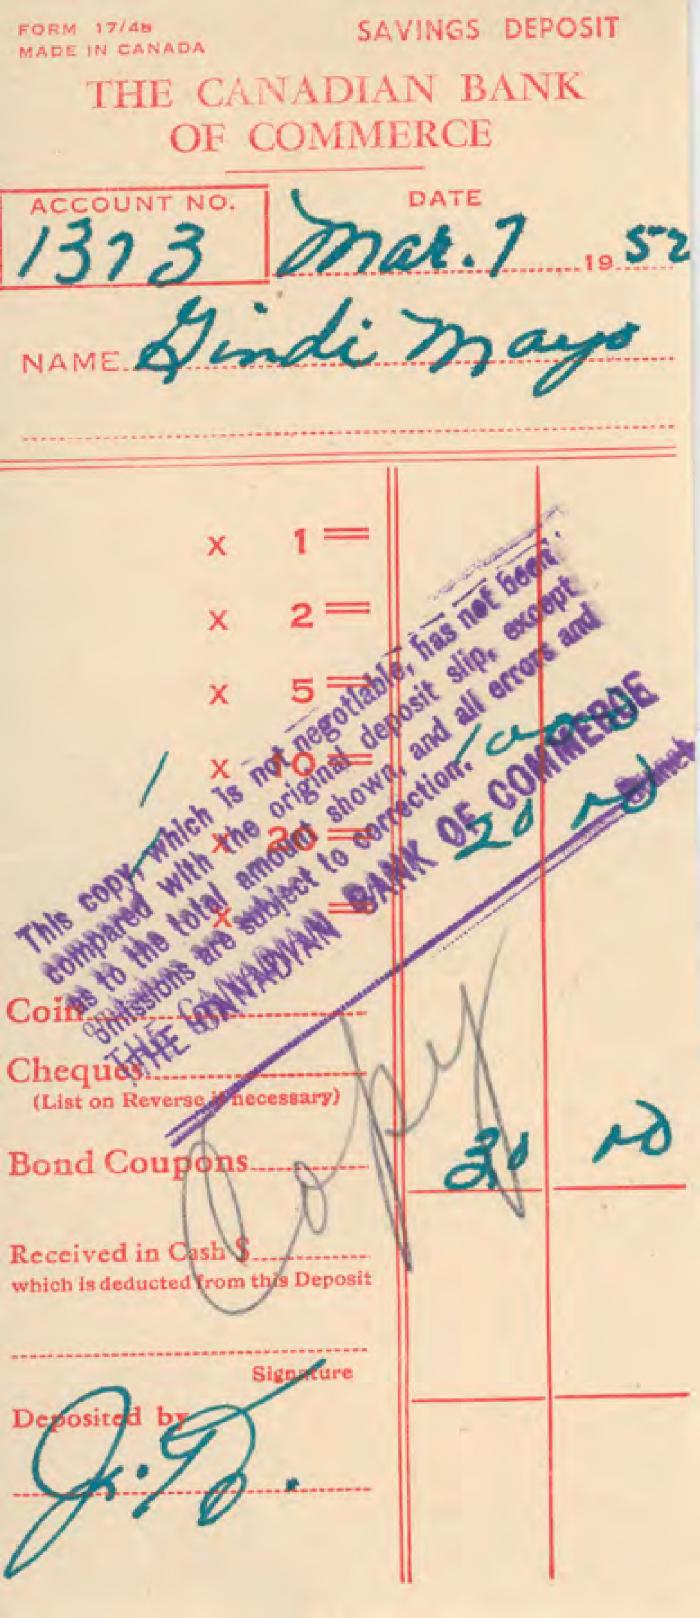 FORM 17/48
MADE IN CANADA
SAVINGS DEPOSIT
THE CANADIAN BANK
OF COMMERCE
ACCOUNT NO.
DATE
1373 Mar. 7 1952
NAME Gindi Mayo
x 1 =
x 2 =
x 5 =
1 x 10 = 10 00
1 x 20 = 20 00
x =
This copy, which is not negotiable, has not been
compared with the original deposit slip, except
as to the total amount shown, and all errors and
omissions are subject to correction.
THE CANADIAN BANK OF COMMERCE
Coin
Cheques
(List on Reverse if necessary)
Copy
Bond Coupons 30 00
Received in Cash $
which is deducted from this Deposit
Signature
Deposited by